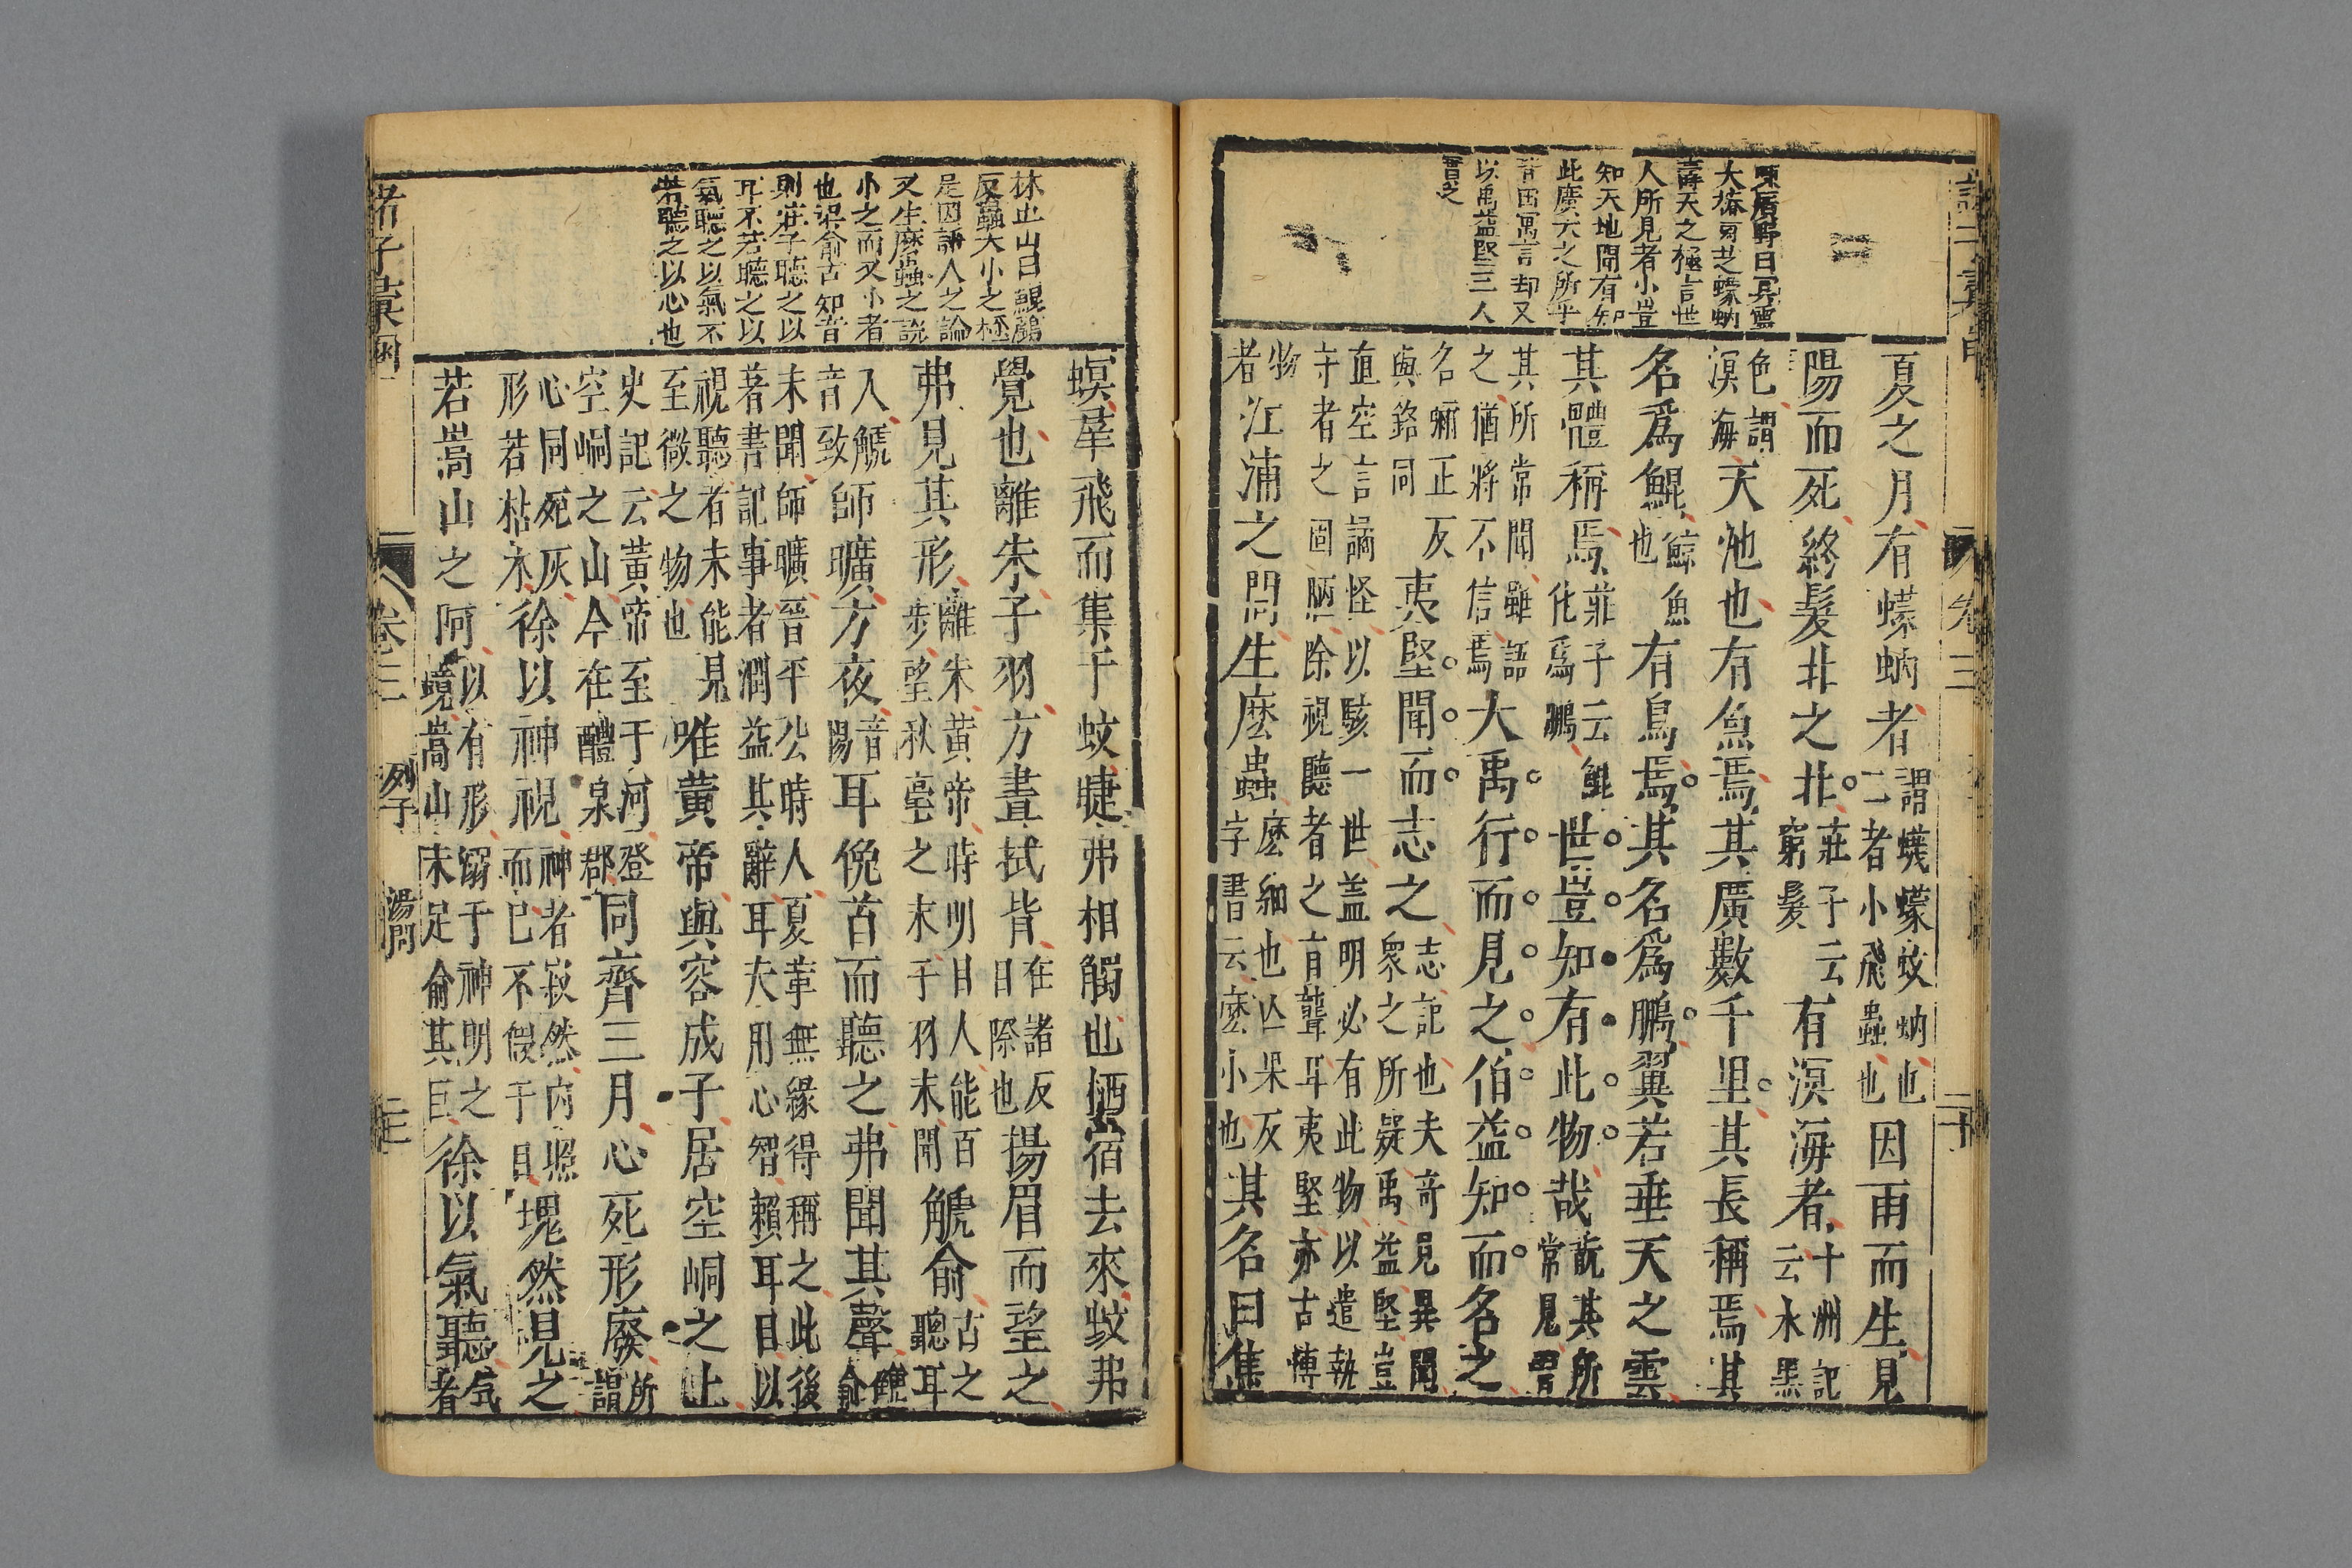 陳眉野曰冥靈
大椿菌芝蠓蚋
壽夭之極言世
人所見者小豈
知天地間有如
此廣大之所乎
皆因寓言却又
以禹益堅三人
實之
夏之月有蠓蚋者謂蠛蠓蚊蚋也二者小飛蟲也因雨而生見
陽而死終髮北之北莊子云窮髮有溟海者十洲記云水黑
色謂溟海天池也有魚焉其廣數千里其長稱焉其
名爲鯤鯨魚也有鳥焉其名爲鵬翼若垂天之雲
其體稱焉莊子云鯤化爲鵬世豈知有此物哉翫其所常見習
其所常聞雖語之猶將不信焉大禹行而見之伯益知而名之
名與銘同穪正反夷堅聞而志之志記也夫奇見異聞衆之所疑禹益堅豈
直空言譎怪以駭一世盖明必有此物以遣執守者之固陋除視聽者之盲聾耳夷堅亦古博
物者江浦之間生麽蟲麽細也亾果反字書云麽小也其名曰焦
螟羣飛而集于蚊睫弗相觸也栖宿去來蚊弗
覺也離朱子羽方晝拭眥在諸反目際也揚眉而望之
弗見其形離朱黄帝時明目人能百步望秋毫之末子羽未聞䚦俞古之聰耳
人䚦音致師曠方夜音陽耳俛首而聽之弗聞其聲䚦俞
未聞師曠晉平公時人夏革無緣得稱之此後著書記事者潤益其辭耳夫用心智賴耳目以
視聽者未能見至微之物也唯黄帝與容成子居空峒之上
史記云黄帝至于河登空峒之山今在醴泉郡同齋三月心死形廢所謂
心同死灰形若枯木徐以神視神者寂然内照而已不假于目塊然見之
若嵩山之阿以有形溺于神明之境嵩山未足俞其巨徐以氣聽氣者
林止山曰鯤鵬
反蟲大小之極
是因詩人之論
又生麽蟲之説
小之而又小者
也䚦俞古知音
則莊子聽之以
耳不若聽之以
氣聽之以氣不
若聽之以心也
卷三
列子
湯問